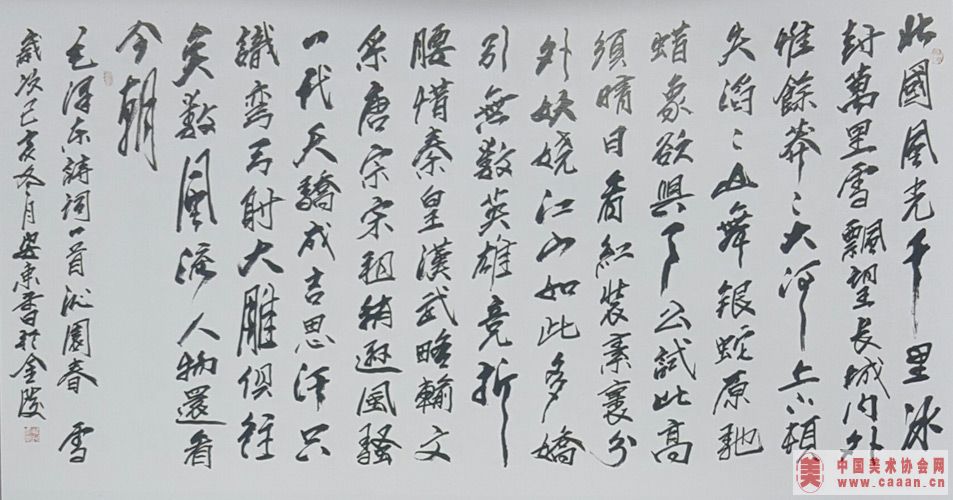 北國風光千里冰
封萬里雪飄望長城内外
惟餘莽〻大河上下頓
失滔〻山舞銀蛇原馳
蜡象欲與天公試比高
須晴日看紅裝素裹分
外妖嬈江山如此多嬌
引無數英雄競折
腰惜秦皇漢武略輸文
采唐宗宋祖稍遜風騷
一代天驕成吉思汗只
識彎弓射大雕俱往
矣數風流人物還看
今朝
毛澤東詩詞一首沁園春 雪
歲次己亥冬月於金陵
美 中国美术协会网
www.caaan.cn